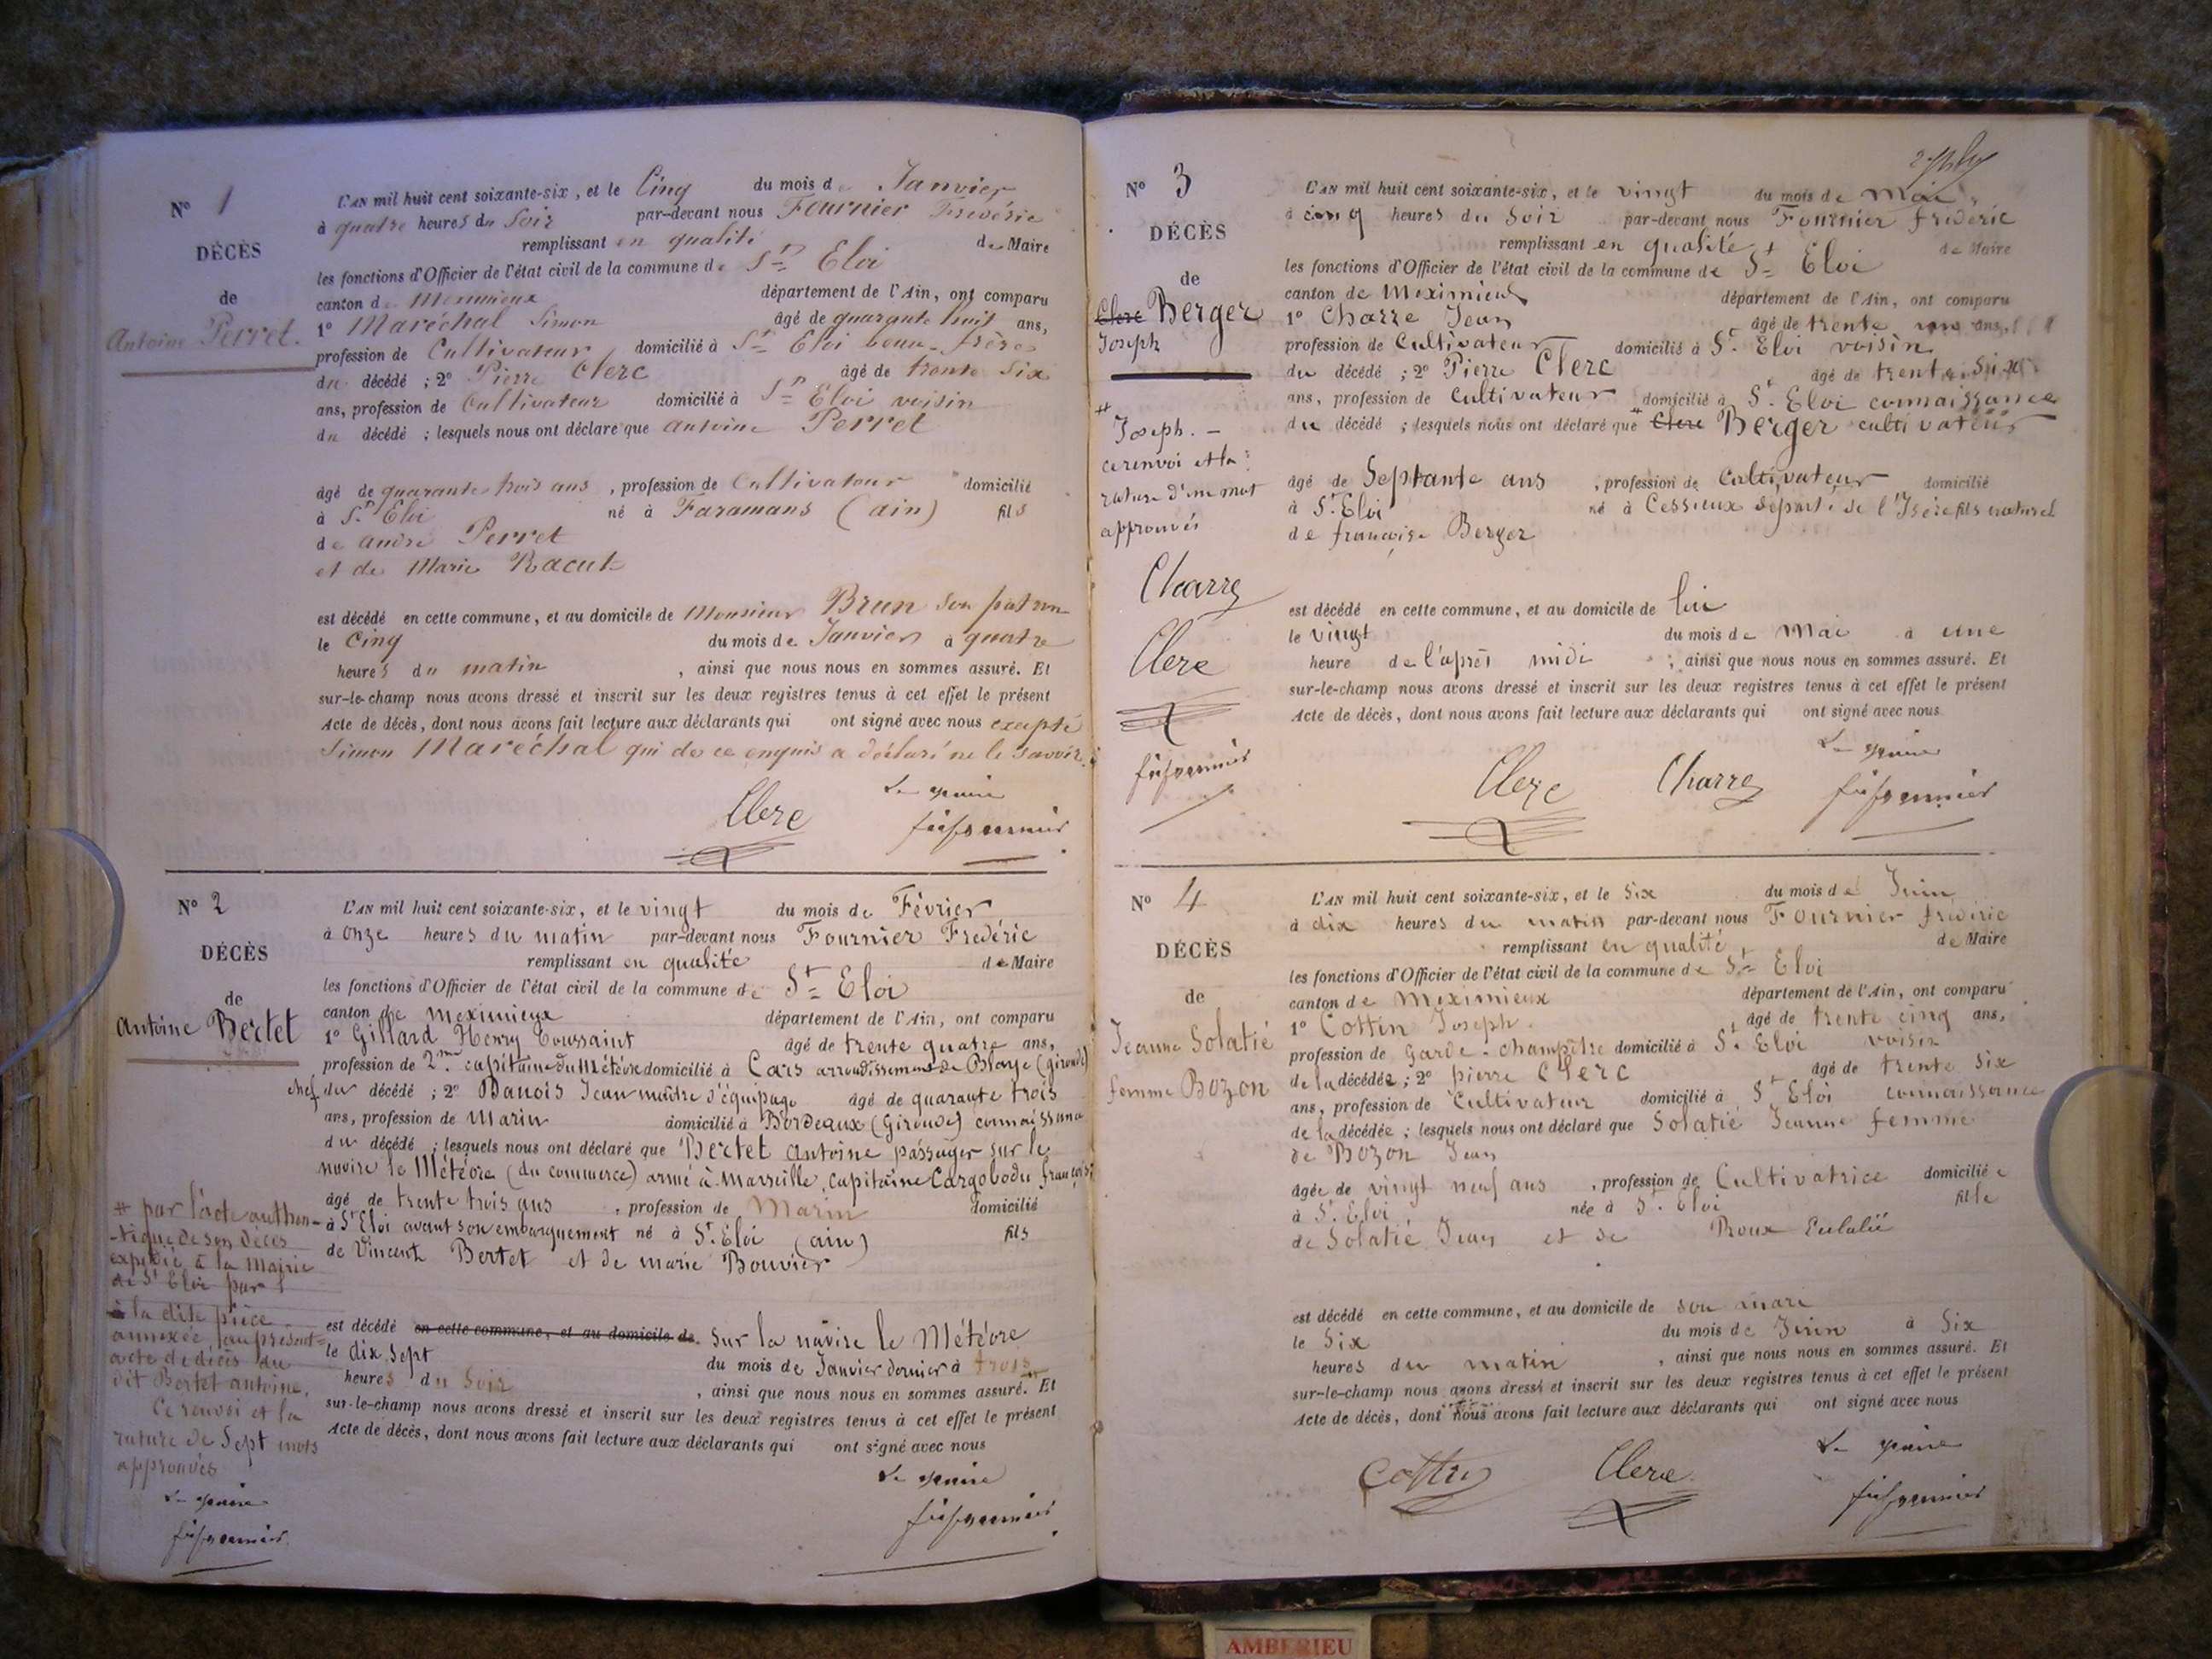 N° 1
DÉCÈS
de
Antoine Perret.
L'AN mil huit cent soixante-six, et le Cinq du mois de Janvier
à quatre heures du Soir par-devant nous Fournier Frédéric
remplissant en qualité de Maire
les fonctions d'Officier de l'état civil de la commune de St Eloi
canton de Meximieux département de l'Ain, ont comparu
1° Maréchal Simon âgé de quarante huit ans,
profession de Cultivateur domicilié à St Eloi beau-frère
du décédé ; 2° Pierre Clerc âgé de trente Six
ans, profession de Cultivateur domicilié à St Eloi voisin
du décédé ; lesquels nous ont déclaré que antoine Perret
âgé de quarante trois ans, profession de Cultivateur domicilié
à St Eloi né à Faramans (ain) fils
de andré Perret
et de Marie Racut
est décédé en cette commune, et au domicile de Monsieur Brun son patron
le Cinq du mois de Janvier à quatre
heures du matin, ainsi que nous nous en sommes assuré. Et
sur-le-champ nous avons dressé et inscrit sur les deux registres tenus à cet effet le présent
Acte de décès, dont nous avons fait lecture aux déclarants qui ont signé avec nous excepté
Simon Maréchal qui de ce enquis a déclaré ne le savoir.
Clerc Le maire
N° 2
DÉCÈS
de
Antoine Bertet
L'AN mil huit cent soixante-six, et le vingt du mois de Février
à onze heures du matin par-devant nous Fournier Fredéric
remplissant en qualité de Maire
les fonctions d'Officier de l'état civil de la commune de St Eloi
canton de meximieux département de l'Ain, ont comparu
1° Gillard Henry Toussaint âgé de trente quatre ans,
profession de 2me capitaine du Météore domicilié à Cars arrondissement de Blaye (gironde)
chef du décédé ; 2° Danois Jean maître d'équipage âgé de quarante trois
ans, profession de Marin domicilié à Bordeaux (Gironde) connaissance
du décédé ; lesquels nous ont déclaré que Bertet Antoine passager sur le
navire le Météore (du commerce) armé à Marseille, capitaine Cargobodu françois
âgé de trente trois ans, profession de Marin domicilié
à St Eloi avant son embarquement né à St Eloi (ain) fils
de Vincent Bertet et de marie Bouvier
# par l'acte authen-
-tique de son décès
expédié à la Mairie
de St Eloi par
la dite pièce
annexée au présent
acte de décès du
dit Bertet antoine,
Ce renvoi et la
rature de Sept mots
approuvés
Le maire
est décédé en cette commune, et au domicile de Sur le navire le Météore
le dix sept du mois de Janvier dernier à trois
heures du Soir, ainsi que nous nous en sommes assuré. Et
sur-le-champ nous avons dressé et inscrit sur les deux registres tenus à cet effet le présent
Acte de décès, dont nous avons fait lecture aux déclarants qui ont signé avec nous
Le maire
N° 3
DÉCÈS
de
Clerc Berger
Joseph
L'AN mil huit cent soixante-six, et le vingt du mois de Mai
à cinq heures du Soir par-devant nous Fournier frédéric
remplissant en qualité de Maire
les fonctions d'Officier de l'état civil de la commune de St Eloi
canton de Meximieux département de l'Ain, ont comparu
1° Charre Jean âgé de trente ans,
profession de Cultivateur domicilié à St Eloi voisin
du décédé ; 2° Pierre Clerc âgé de trente Six
ans, profession de Cultivateur domicilié à St Eloi connaissance
du décédé ; lesquels nous ont déclaré que # Clerc Berger cultivateur
# Joseph. –
ce renvoi et la
rature d'un mot
approuvés
Charre
Clerc
âgé de Septante ans, profession de Cultivateur domicilié
à St Eloi né à Cessieux départ. de l'Isère fils naturel
de françoise Berger
est décédé en cette commune, et au domicile de lui
le vingt du mois de Mai à une
heure de l'après midi, ainsi que nous nous en sommes assuré. Et
sur-le-champ nous avons dressé et inscrit sur les deux registres tenus à cet effet le présent
Acte de décès, dont nous avons fait lecture aux déclarants qui ont signé avec nous
Clerc Charre Le maire
N° 4
DÉCÈS
de
Jeanne Solatié
femme Bozon
L'AN mil huit cent soixante-six, et le Six du mois de Juin
à dix heures du matin par-devant nous Fournier frédéric
remplissant en qualité de Maire
les fonctions d'Officier de l'état civil de la commune de St Eloi
canton de Meximieux département de l'Ain, ont comparu
1° Cottin Joseph. âgé de trente cinq ans,
profession de Garde-champêtre domicilié à St Eloi voisin
de la décédée ; 2° pierre Clerc âgé de trente Six
ans, profession de Cultivateur domicilié à St Eloi connaissance
de la décédée ; lesquels nous ont déclaré que Solatié Jeanne femme
de Bozon Jean
âgée de vingt neuf ans, profession de Cultivatrice domiciliée
à St Eloi née à St Eloi fille
de Solatié Jean et de Roux Eulalie
est décédé en cette commune, et au domicile de son mari
le Six du mois de Juin à Six
heures du matin, ainsi que nous nous en sommes assuré. Et
sur-le-champ nous avons dressé et inscrit sur les deux registres tenus à cet effet le présent
Acte de décès, dont nous avons fait lecture aux déclarants qui ont signé avec nous
Cottin Clerc Le maire
AMBERIEU